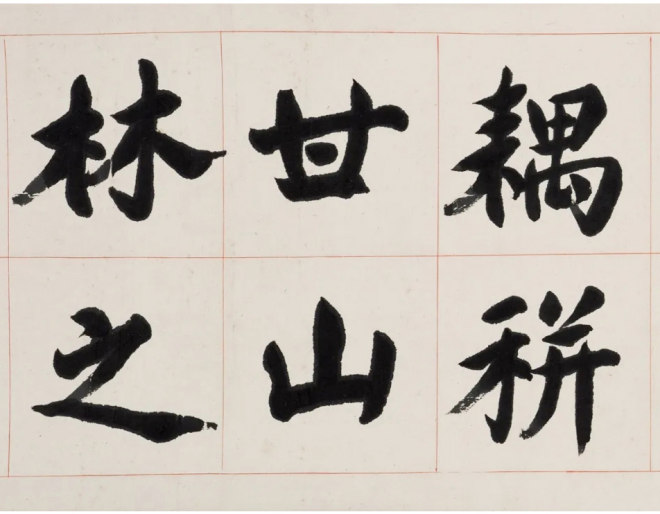 耦耕
甘山
林之